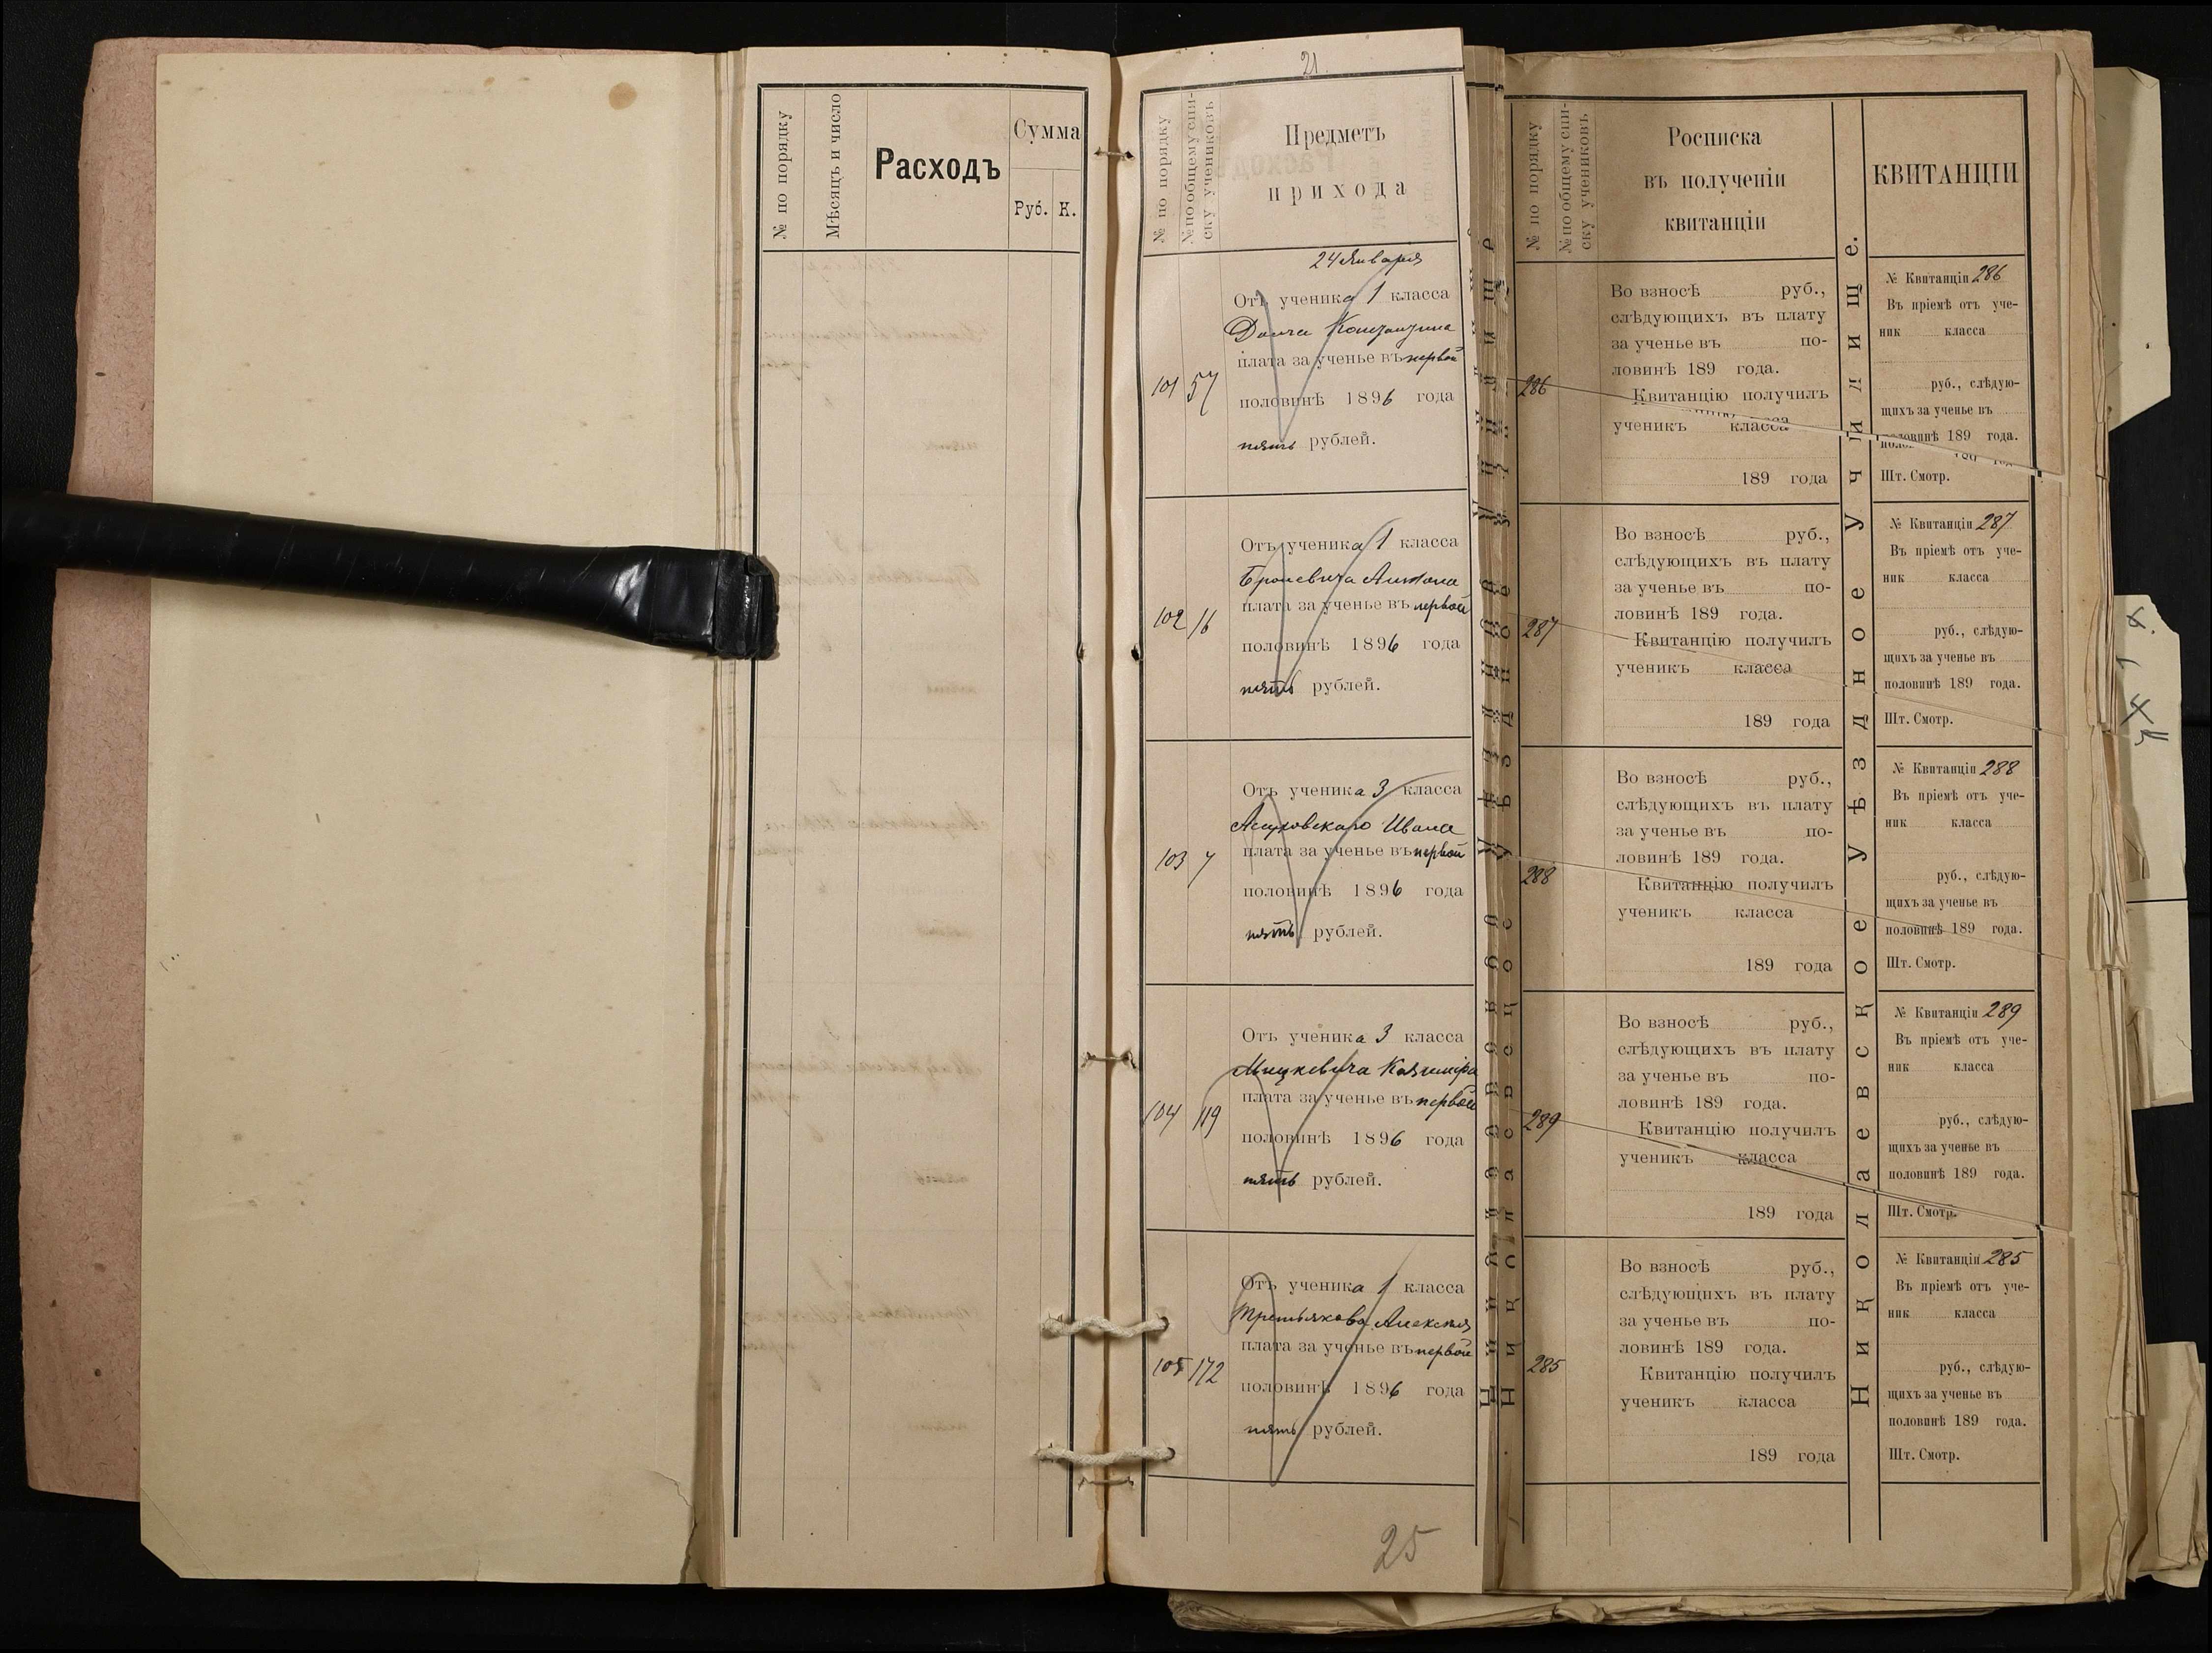 № по порядку
Мѣсяцъ и число
Расходъ
Сумма
Руб. К.
21
№ по порядку
№ по общему спи-
ску учениковъ
Предметъ
прихода
24 Января
101 57
Отъ ученика 1 класса
Константина
плата за ученье въ первой
половинѣ 1896 года
пять рублей.
102 16
Отъ ученика 1 класса
Броневича Антона
плата за ученье въ первой
половинѣ 1896 года
пять рублей.
103 7
Отъ ученика 3 класса
Ивана
плата за ученье въ первой
половинѣ 1896 года
пять рублей.
104 119
Отъ ученика 3 класса
Мицкевича Казимира
плата за ученье въ первой
половинѣ 1896 года
пять рублей.
105 172
Отъ ученика 1 класса
Третьякова Алексѣя
плата за ученье въ первой
половинѣ 1896 года
пять рублей.
25
№ по порядку
№ по общему спи-
ску учениковъ
Росписка
въ полученіи
квитанціи
286
Во взносѣ руб.,
слѣдующихъ въ плату
за ученье въ по-
ловинѣ 189 года.
Квитанцію получилъ
ученикъ класса
189 года
287
Во взносѣ руб.,
слѣдующихъ въ плату
за ученье въ по-
ловинѣ 189 года.
Квитанцію получилъ
ученикъ класса
189 года
288
Во взносѣ руб.,
слѣдующихъ въ плату
за ученье въ по-
ловинѣ 189 года.
Квитанцію получилъ
ученикъ класса
189 года
289
Во взносѣ руб.,
слѣдующихъ въ плату
за ученье въ по-
ловинѣ 189 года.
Квитанцію получилъ
ученикъ класса
189 года
285
Во взносѣ руб.,
слѣдующихъ въ плату
за ученье въ по-
ловинѣ 189 года.
Квитанцію получилъ
ученикъ класса
189 года
Николаевское Уѣздное Училище.
КВИТАНЦІИ
№ Квитанціи 286
Въ пріемѣ отъ уче-
ник класса
руб., слѣдую-
щихъ за ученье въ
половинѣ 189 года.
Шт. Смотр.
№ Квитанціи 287
Въ пріемѣ отъ уче-
ник класса
руб., слѣдую-
щихъ за ученье въ
половинѣ 189 года.
Шт. Смотр.
№ Квитанціи 288
Въ пріемѣ отъ уче-
ник класса
руб., слѣдую-
щихъ за ученье въ
половинѣ 189 года.
Шт. Смотр.
№ Квитанціи 289
Въ пріемѣ отъ уче-
ник класса
руб., слѣдую-
щихъ за ученье въ
половинѣ 189 года.
Шт. Смотр.
№ Квитанціи 285
Въ пріемѣ отъ уче-
ник класса
руб., слѣдую-
щихъ за ученье въ
половинѣ 189 года.
Шт. Смотр.